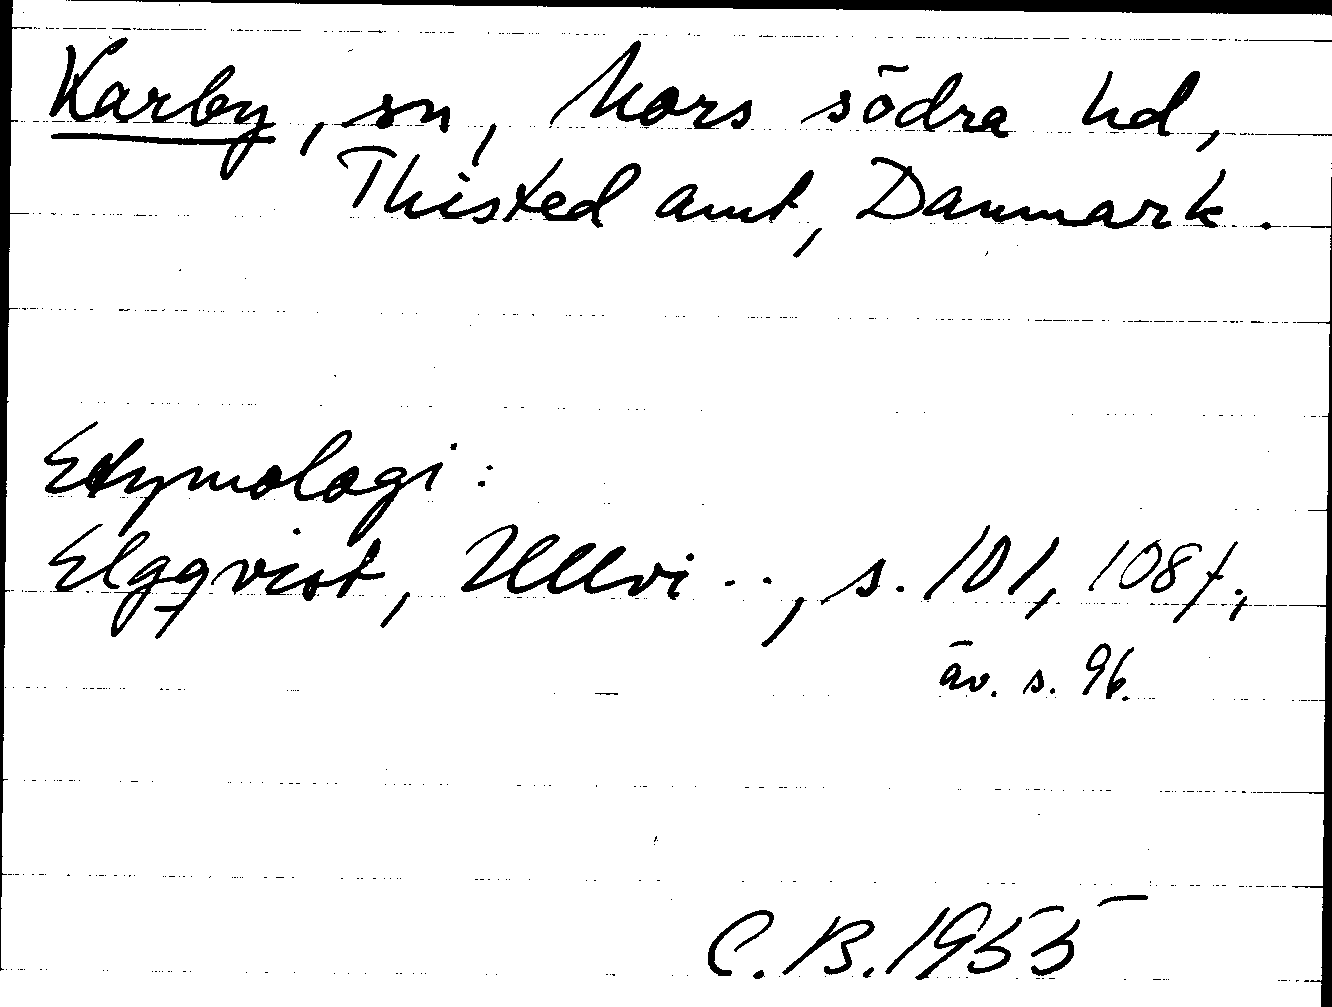 Karby, sn, Mors södra hd,
Thisted amt, Danmark.
Etymologi:
Elgqvist, Ullvi.., s. 101, 108f.,
äv. s. 96.
C.B.1955